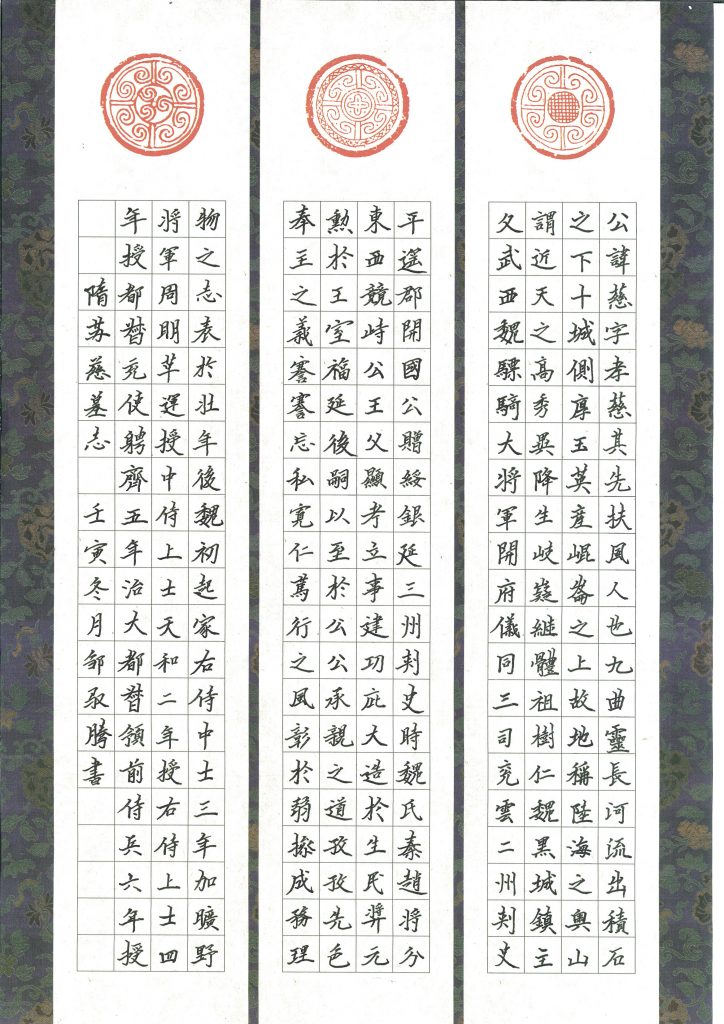 公諱慈字孝慈其先扶風人也九曲靈長河流出積石
之下十城側厚玉英產崐崙之上故地稱陸海之奧山
謂近天之高秀異降生岐嶷繼體祖樹仁魏黑城鎮主
父武西魏驃騎大将軍開府儀同三司兗雲二州刾史
平遥郡開國公贈綏銀延三州刾史時魏氏秦趙将分
東西競峙公王父顯考立事建功庇大造於生民羿元
勲於王室福延後嗣以至於公公承親之道孜孜先色
奉主之義謇謇忘私寛仁篤行之風彰於弱掾成務理
物之志表於壯年後魏初起家右侍中士三年加曠野
将軍周明革運授中侍上士天和二年授右侍上士四
年授都督充使聘齊五年治大都督領前侍兵六年授
隋苏慈墓志 壬寅冬月邹取騰書